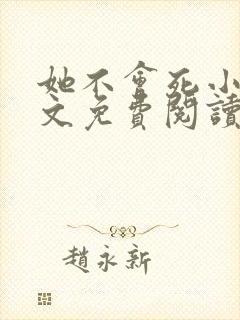 她不會死小
文免費閱讀
趙永新